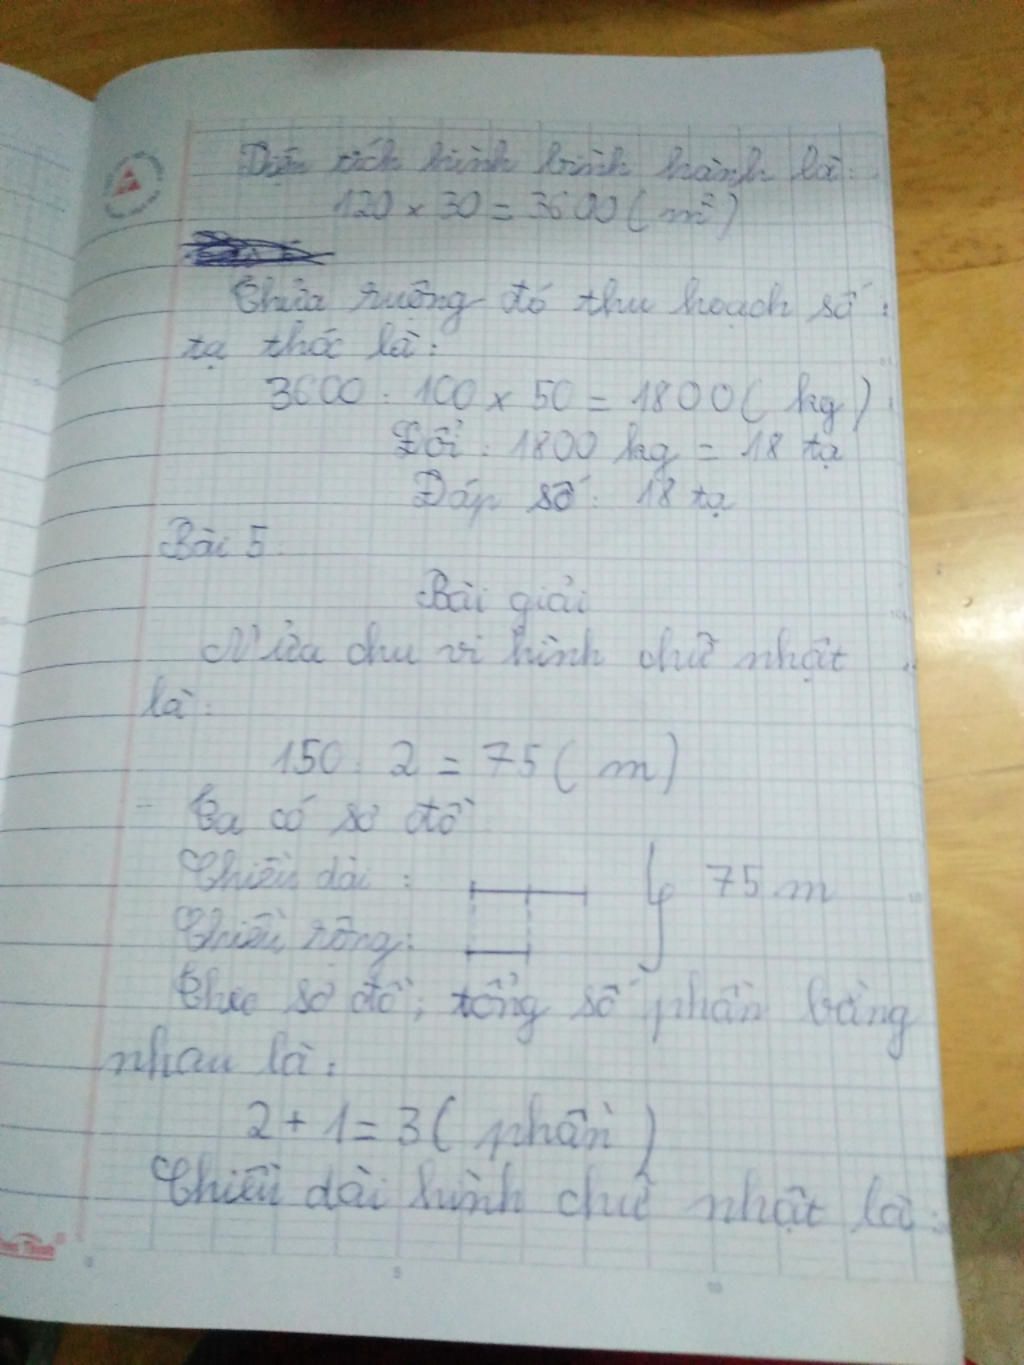 Diện tích hình bình hành là:
120 x 30 = 3600 ( m² )
Thửa ruộng đó thu hoạch số
tạ thóc là:
3600 : 100 x 50 = 1800 ( kg )
Đổi : 1800 kg = 18 tạ
Đáp số : 18 tạ
Bài 5
Bài giải
Nửa chu vi hình chữ nhật
là :
150 : 2 = 75 ( m )
Ta có sơ đồ
Chiều dài : 75 m
Chiều rộng:
Theo sơ đồ, tổng số phần bằng
nhau là :
2 + 1 = 3 ( phần )
Chiều dài hình chữ nhật là :
0 5 10